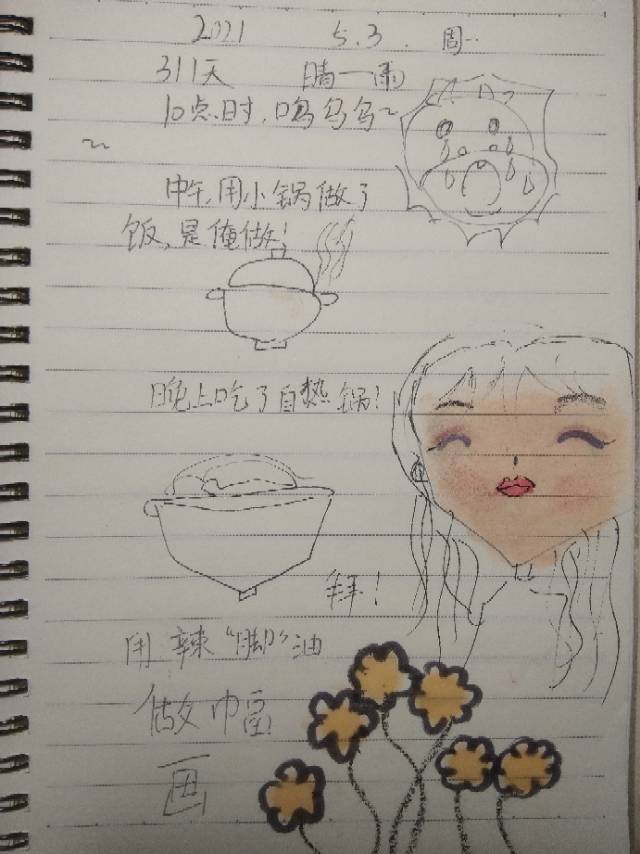 2021 5.3. 周一
311天 晴—雨
10点时,呜呜呜~
~
中午,用小锅做了
饭,是俺做!
晚上吃了自热锅!
拜!
用辣“脚”油
做巾畐
画